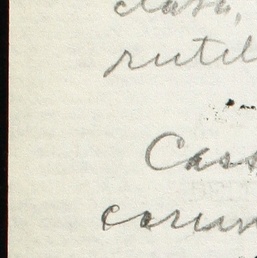 class,
rutil
Cass
corun